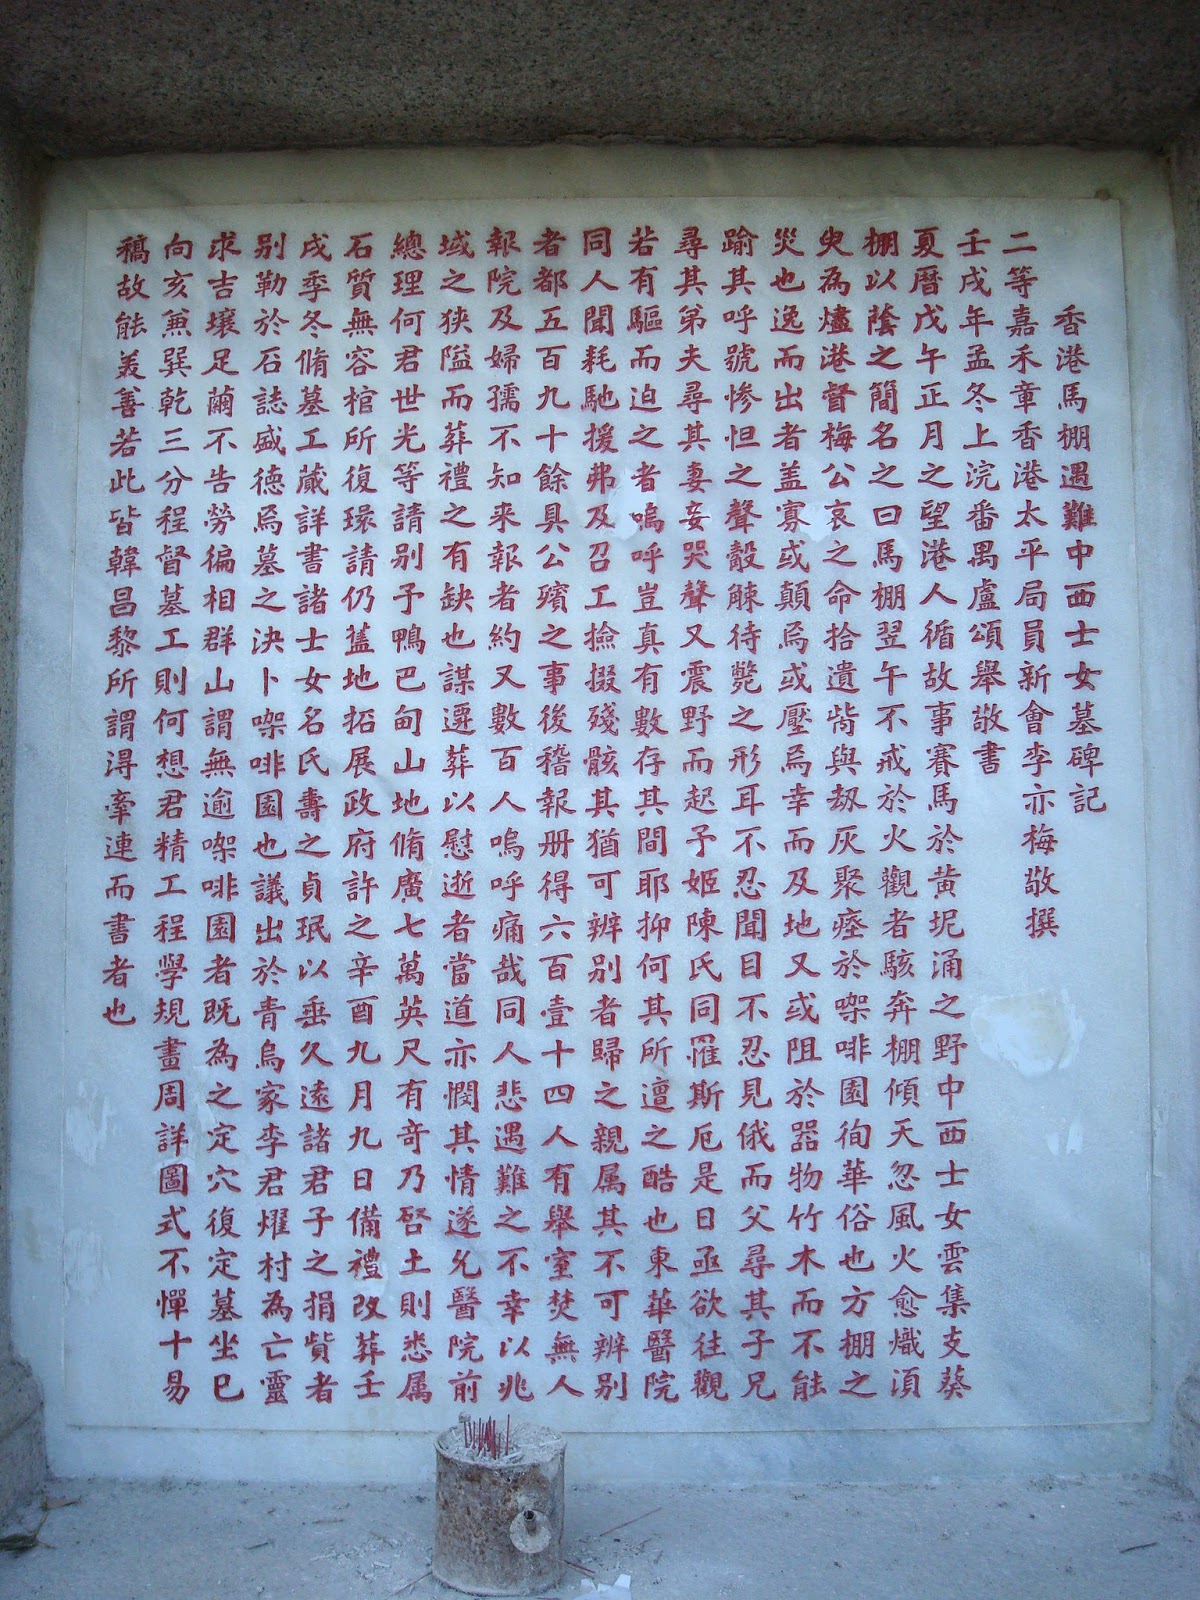 香港馬棚遇難中西士女墓碑記
二等嘉禾章香港太平局員新會李亦梅敬撰
壬戌年孟冬上浣番禺盧頌舉敬書
夏曆戊午正月之望港人循故事賽馬於黃坭涌之野中西士女雲集支葵
棚以蔭之簡名之曰馬棚翌午不戒於火觀者駭奔棚傾天忽風火愈熾湏
臾為燼港督梅公哀之命拾遺胔與刼灰聚瘞於㗎啡園徇華俗也方棚之
災也逸而出者盖寡或顛焉或壓焉幸而及地又或阻於器物竹木而不能
踰其呼號惨怛之聲觳觫待斃之形耳不忍聞目不忍見俄而父尋其子兄
尋其弟夫尋其妻妾哭聲又震野而起予姬陳氏同罹斯厄是日亟欲往觀
若有驅而迫之者嗚呼豈真有數存其間耶抑何其所遭之酷也東華醫院
同人聞耗馳援弗及召工撿掇殘骸其猶可辨别者歸之親属其不可辨别
者都五百九十餘具公殯之事後稽報册得六百壹十四人有舉室焚無人
報院及婦孺不知来報者約又數百人嗚呼痛哉同人悲遇難之不幸以兆
域之狹隘而葬禮之有缺也謀遷葬以慰逝者當道亦憫其情遂允醫院前
總理何君世光等請别予鴨巴甸山地脩廣七萬英尺有奇乃啓土則悉属
石質無容棺所復環請仍舊地拓展政府許之辛酉九月九日備禮改葬壬
戌季冬脩墓工蕆詳書諸士女名氏壽之貞珉以垂久遠諸君子之捐貲者
别勒於石誌盛德焉墓之決卜㗎啡園也議出於青烏家李君燿村為亡靈
求吉壤足繭不告勞徧相群山謂無逾㗎啡園者既為之定穴復定墓坐巳
向亥兼巽乾三分程督墓工則何想君精工程學規畫周詳圖式不憚十易
稿故能美善若此皆韓昌黎所謂淂牽連而書者也